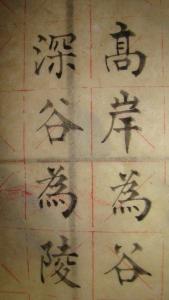 高岸為谷
深谷為陵